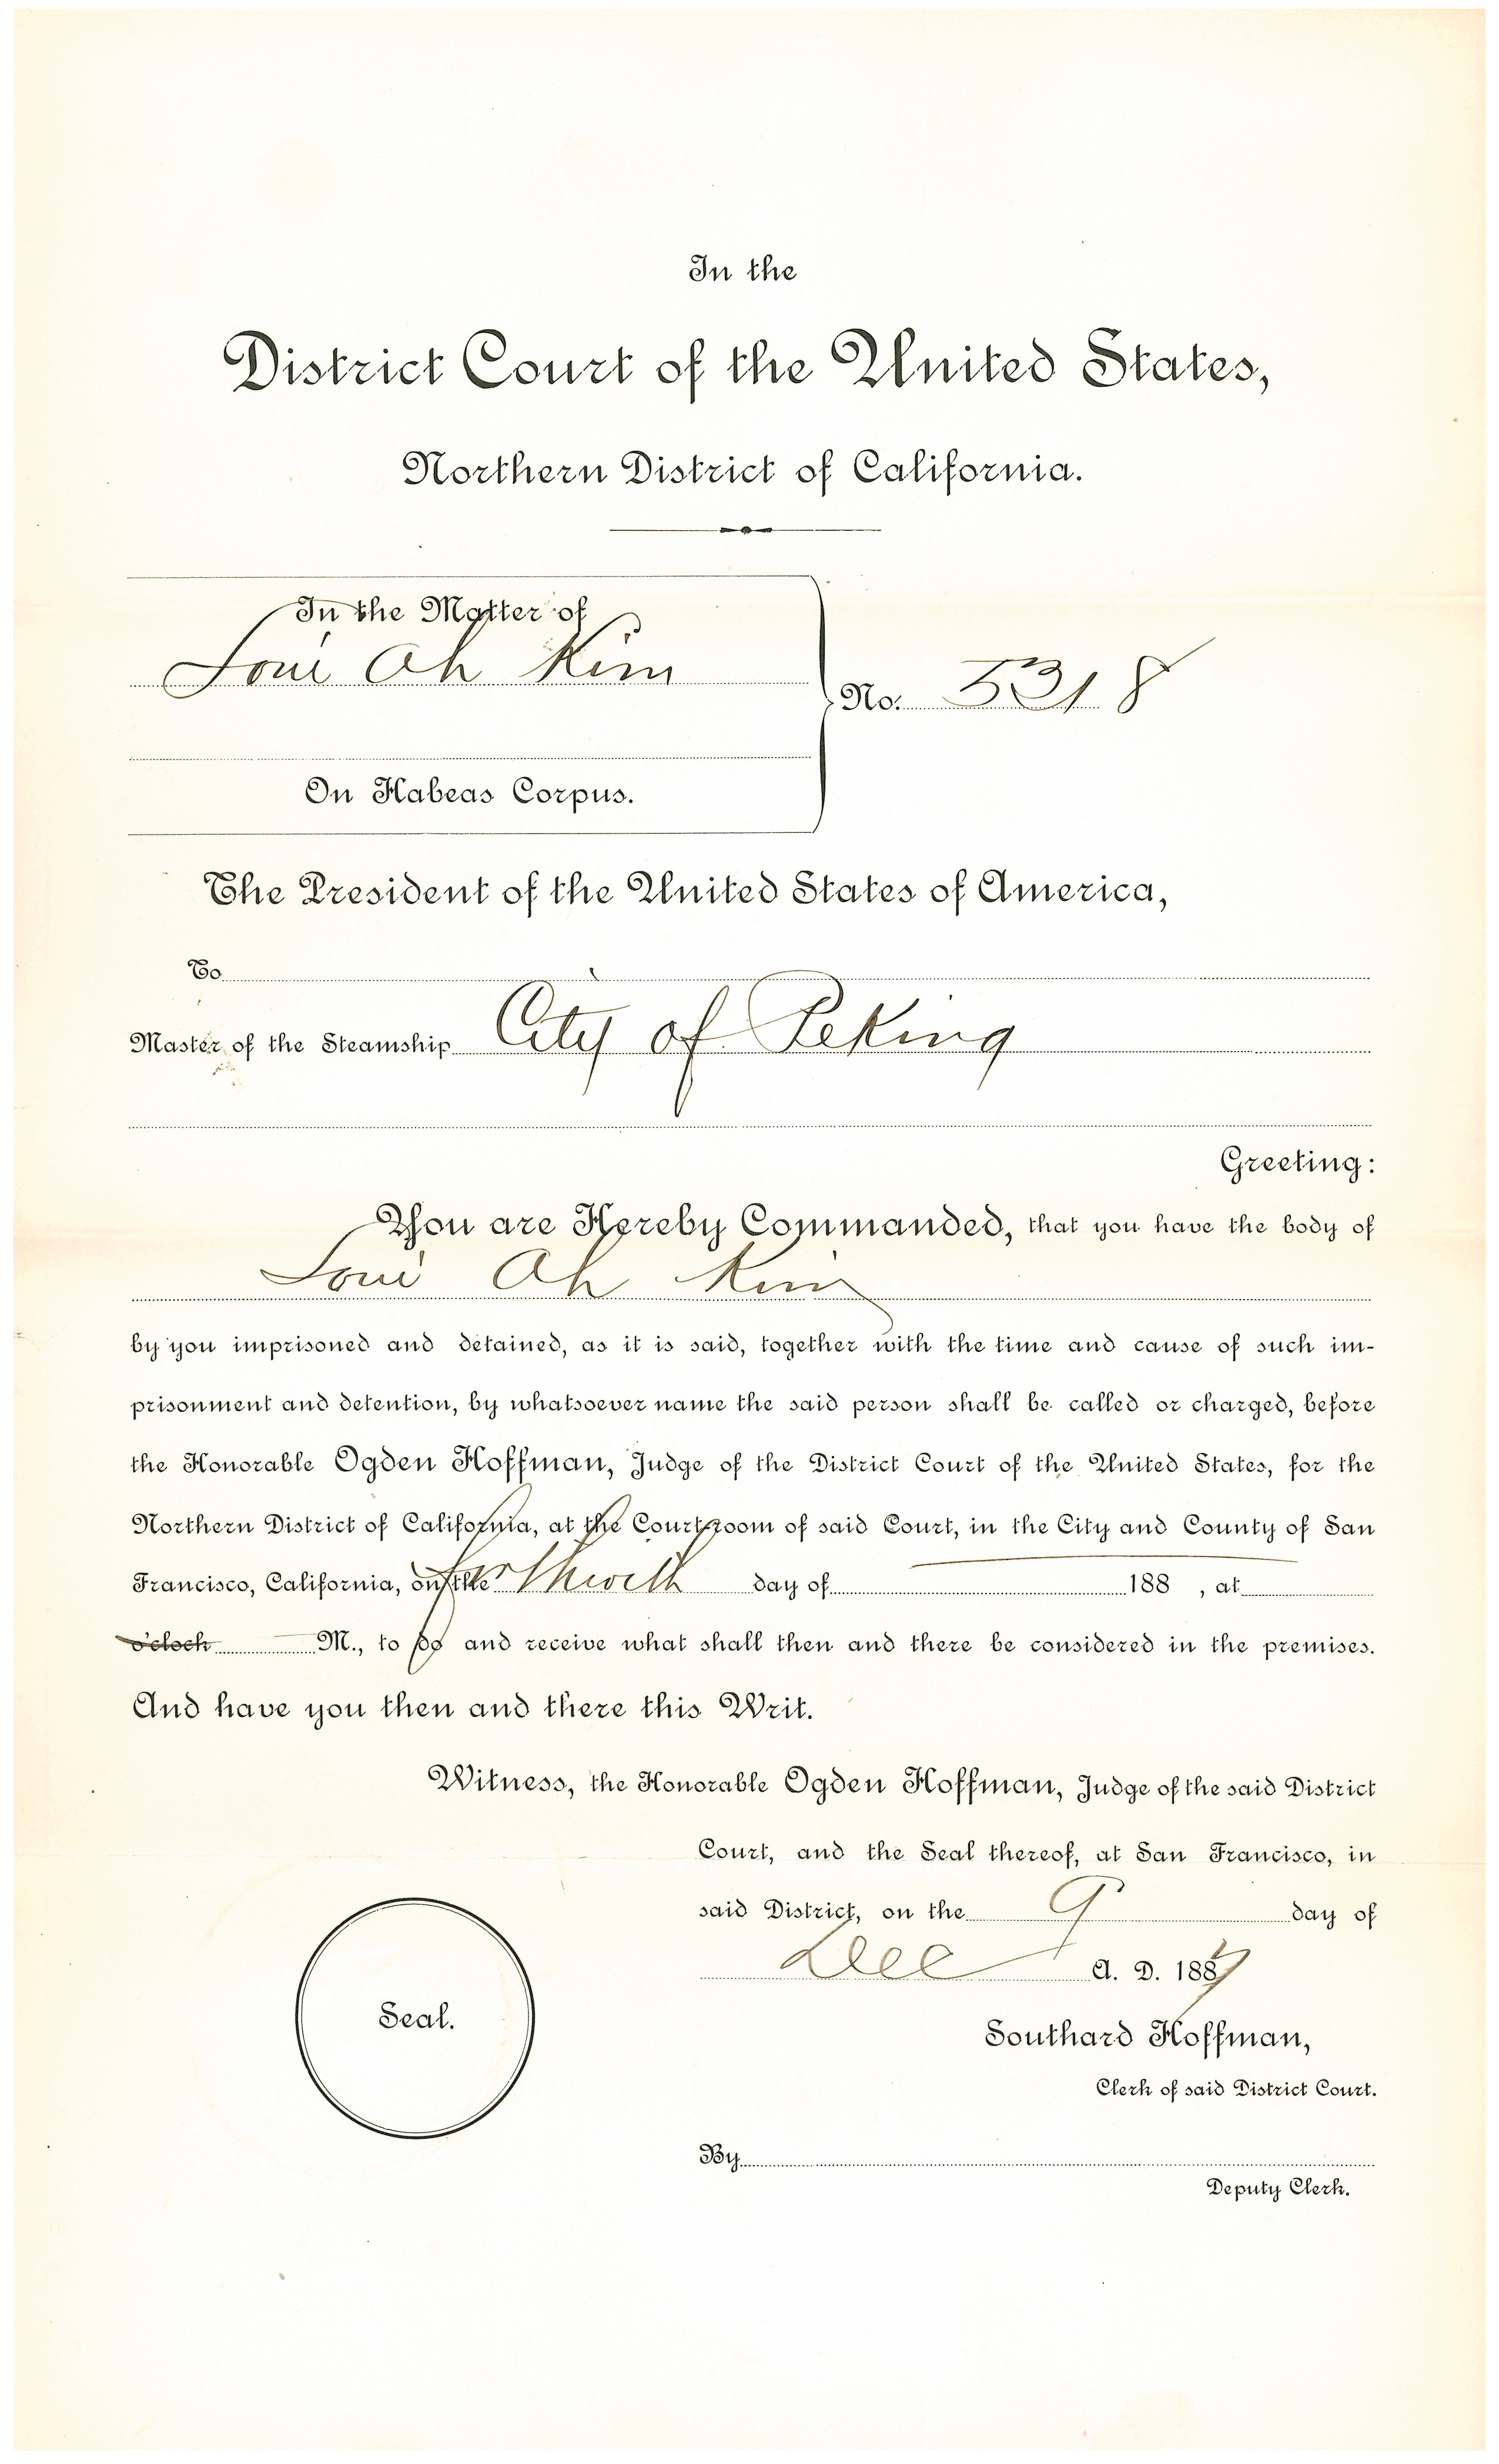 In the
District Court of the United States,
Northern District of California.
In the Matter of
Loui Ah Kim
No. 5318
On Habeas Corpus.
The President of the United States of America,
To
Master of the Steamship City of Peking
Greeting:
You are Hereby Commanded, that you have the body of
Loui Ah Kim
by you imprisoned and detained, as it is said, together with the time and cause of such im-
prisonment and detention, by whatsoever name the said person shall be called or charged, before
the Honorable Ogden Hoffman, Judge of the District Court of the United States, for the
Northern District of California, at the Court-room of said Court, in the City and County of San
Francisco, California, on the forthwith day of 188 , at
o'clock M., to do and receive what shall then and there be considered in the premises.
And have you then and there this Writ.
Witness, the Honorable Ogden Hoffman, Judge of the said District
Court, and the Seal thereof, at San Francisco, in
said District, on the 9 day of
Dec A. D. 1887
Seal.
Southard Hoffman,
Clerk of said District Court.
By
Deputy Clerk.